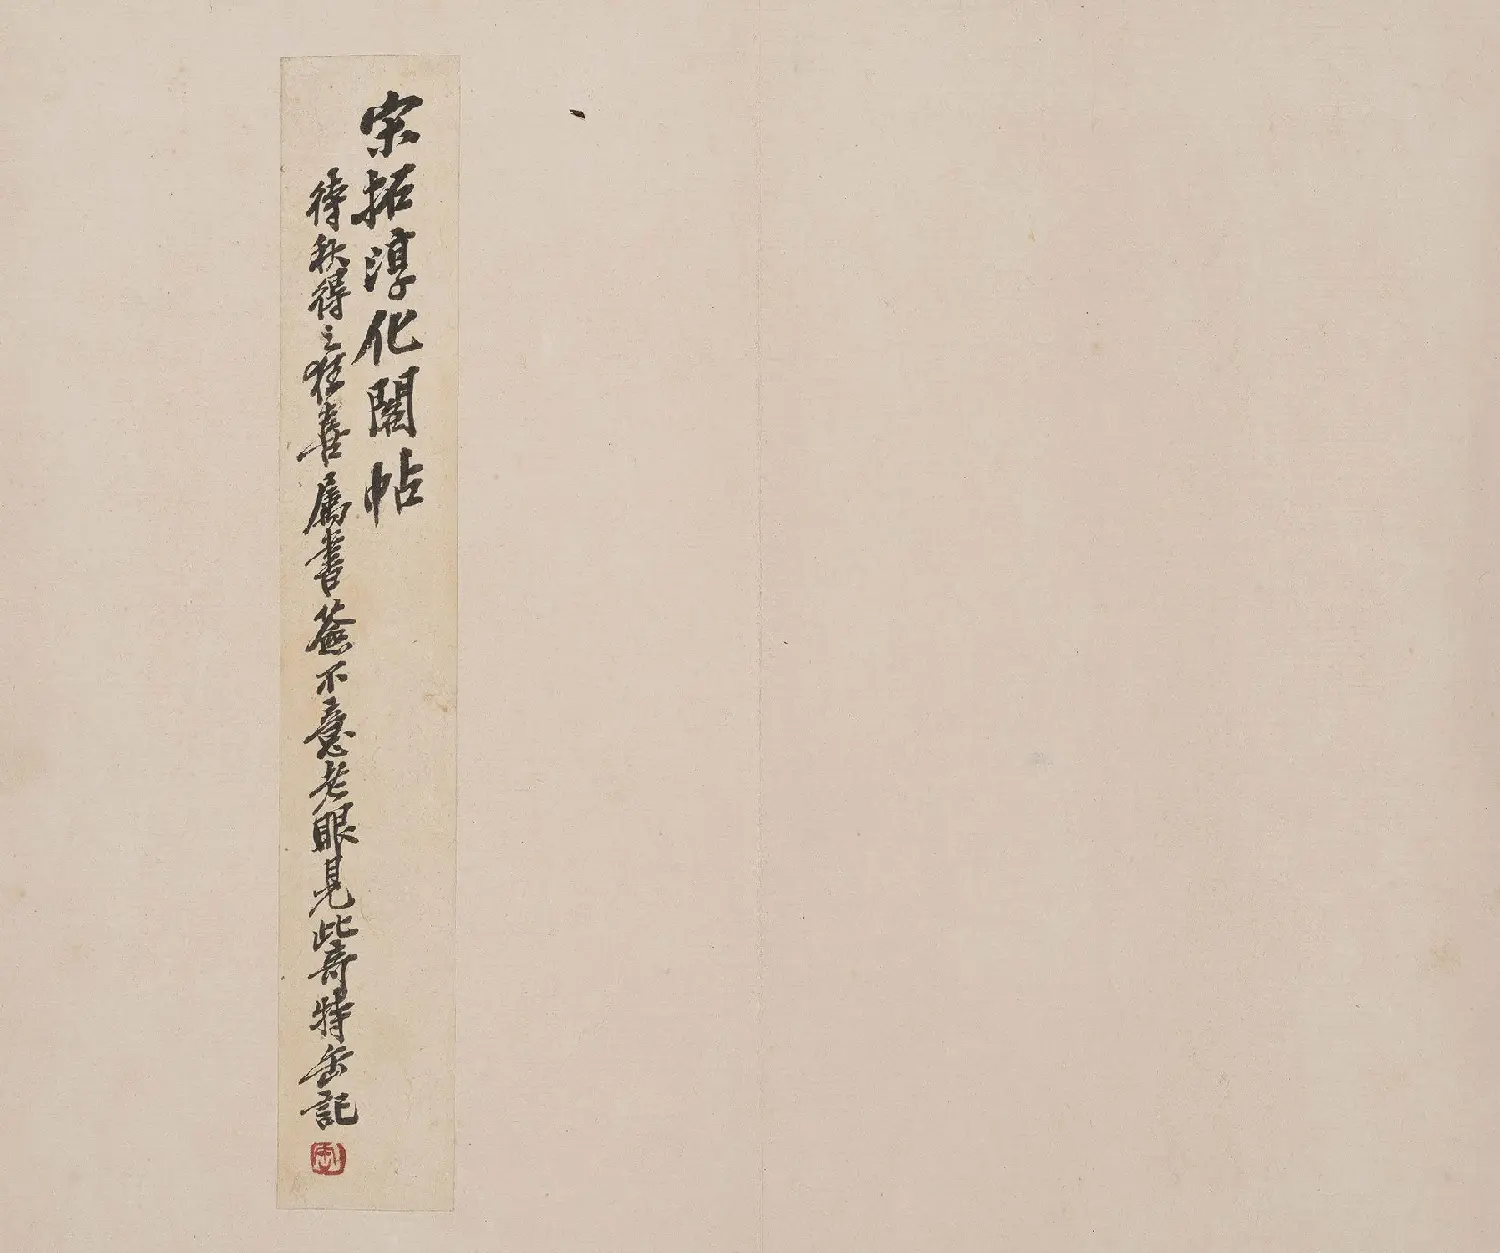 宋拓淳化閣帖
待秋得之狂喜屬書簽不意老眼見此奇特缶記